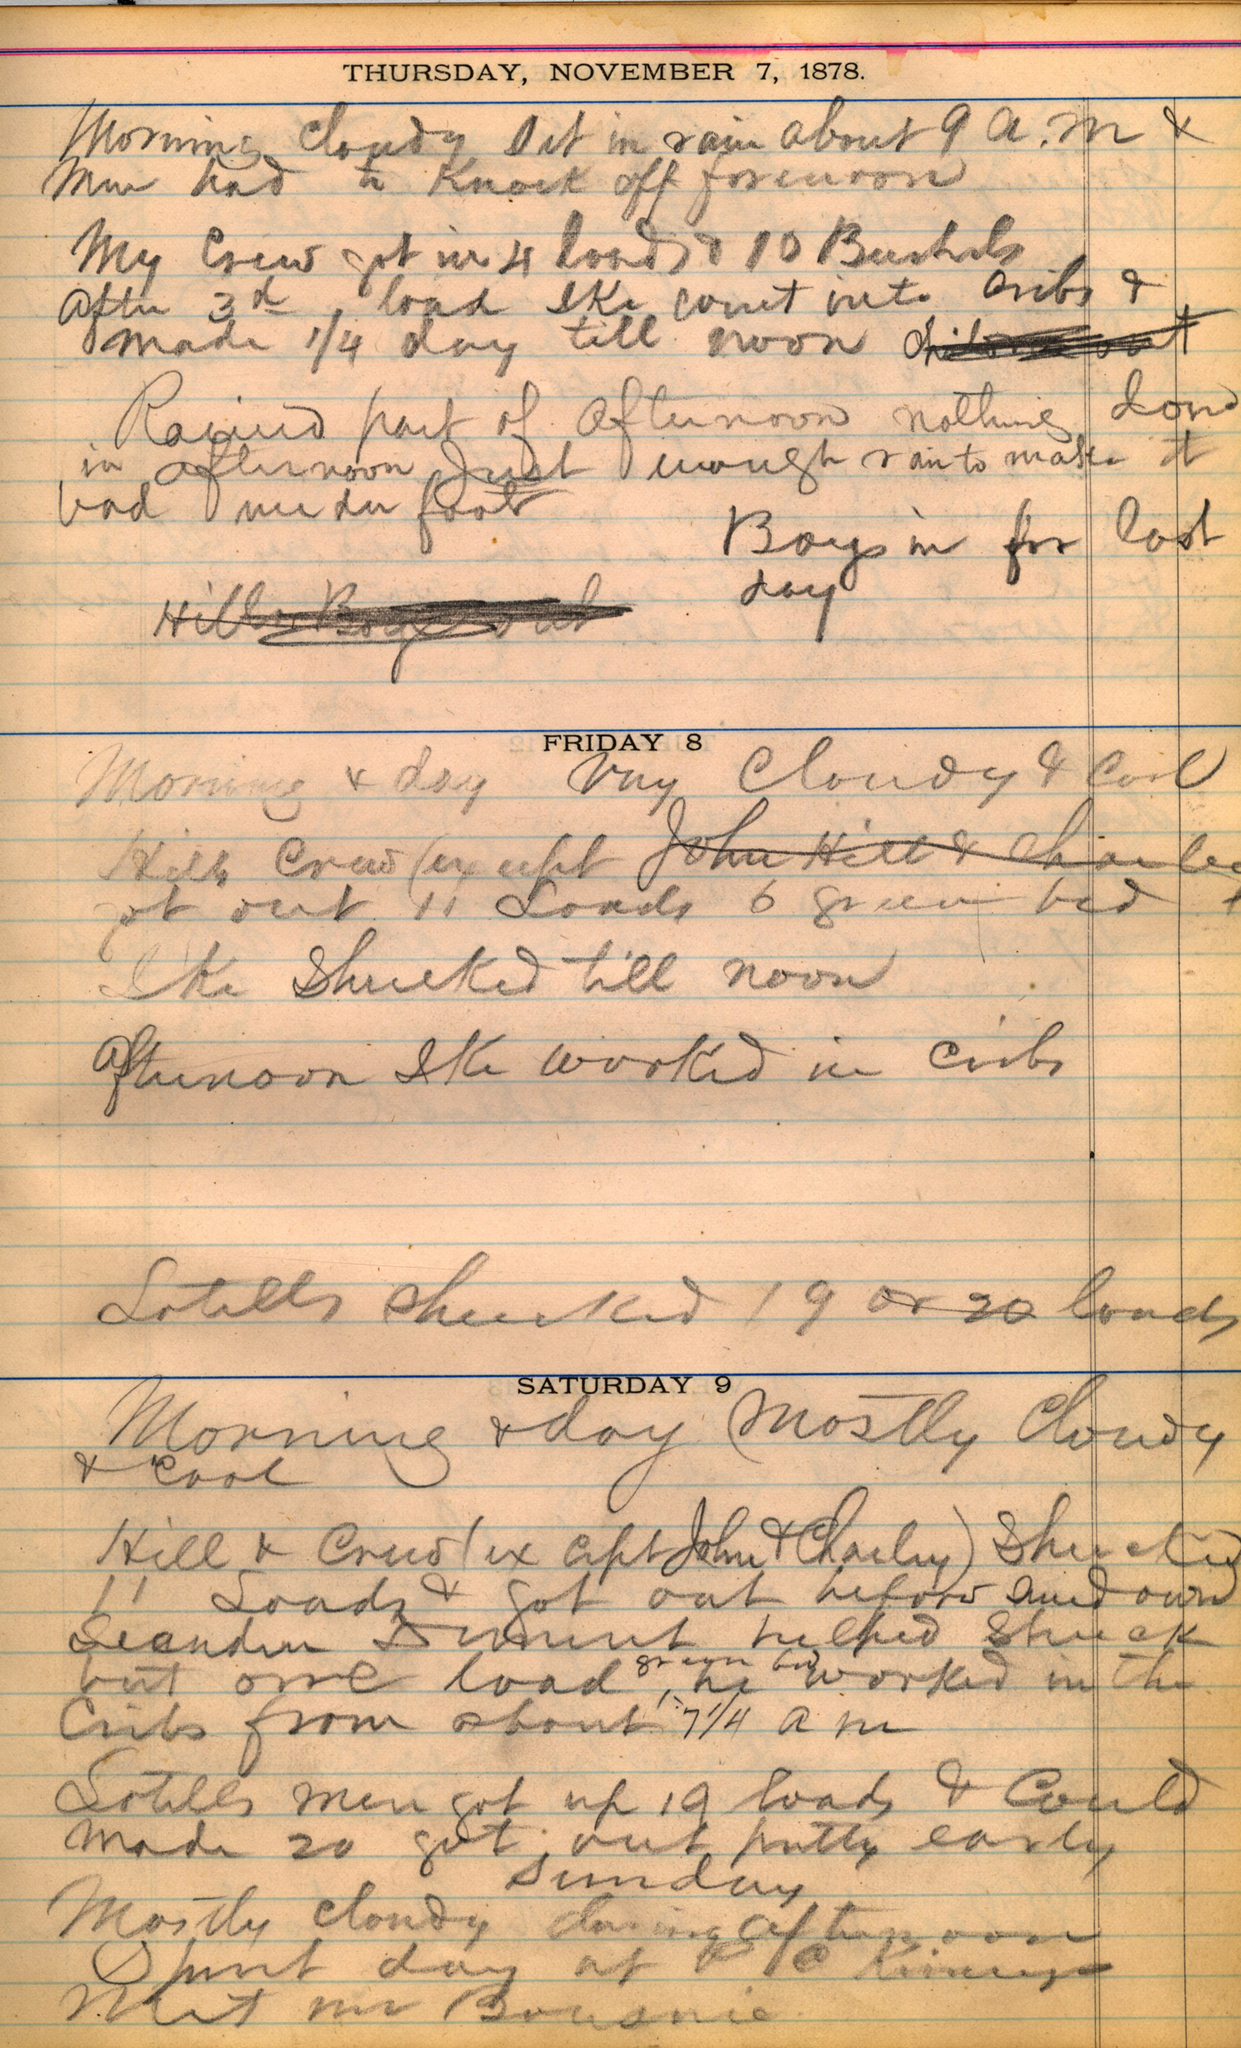 THURSDAY, NOVEMBER 7, 1878.
Morning Cloudy Set in rain about 9 A.M &
Men had to Knock off forenoon
My Crew got in 4 loads & 10 Bushels
After 3d load Ike went into Cribs &
Made 1/4 day till noon
Rained part of Afternoon nothing done
in afternoon Just enough rain to make it
bad under foot
Boys in for lost
day
Hills Boys out
FRIDAY 8
Morning & day Very Cloudy & Cool
Hills Crew (except John Hill & Charley
got out 11 Loads 6 green bed
Ike Shucked till noon
Afternoon Ike worked in Cribs
Lotells Shucked 19 or 20 loads
SATURDAY 9
Morning & day Mostly Cloudy
& Cool
Hill & Crew (except John & Charley) Shucked
11 Loads & got out before Sundown
Leander helped Shuck
but one load green bed he worked in the
Cribs from about 7 1/4 a m
Lotells men got up 19 loads & Could
Made 20 got out pretty early
Sunday
Mostly Cloudy Afternoon
Spent day at
Met Mr